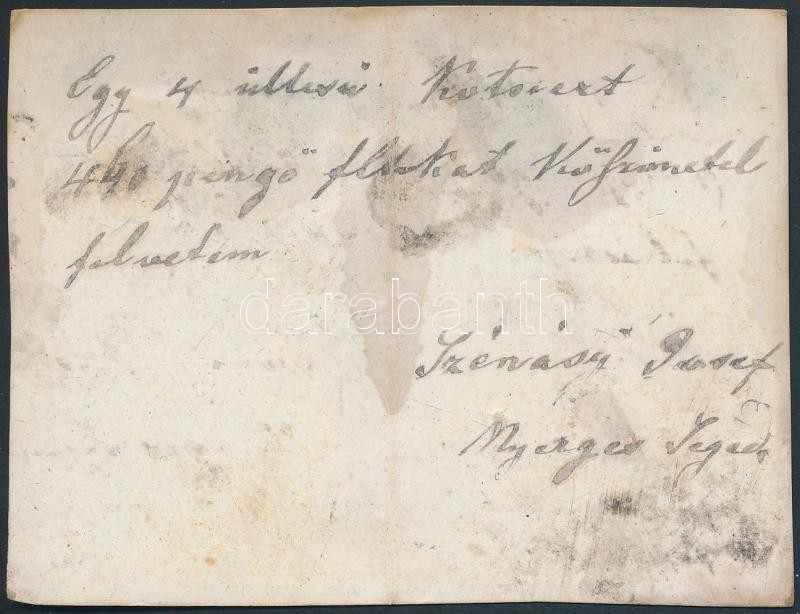 Egy 4 üllesü Kotsiert
440 pengö fltokat Köszönetel
felvetem
darabanth
Szénásÿ Josef
Nyerges Seged.